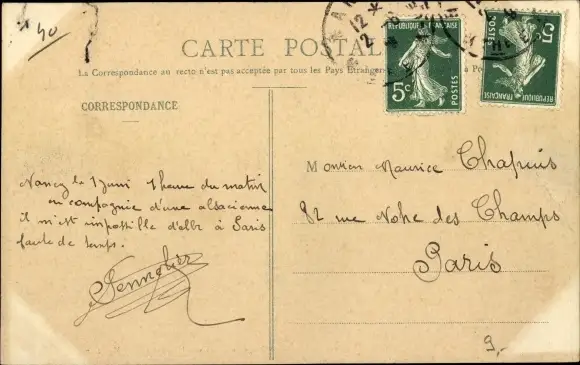 40
CARTE POSTALE
La Correspondance au recto n'est pas acceptée par tous les Pays Étrangers
CORRESPONDANCE
RÉPUBLIQUE FRANÇAISE
5c
POSTES
RÉPUBLIQUE FRANÇAISE
5c
POSTES
Nancy le 1 Juin 1 heure du matin
en compagnie d'une alsacienne
il m'est impossible d'aller à Paris
faute de temps.
Monsieur Maurice Chapuis
82 rue Notre des Champs
Paris
9-